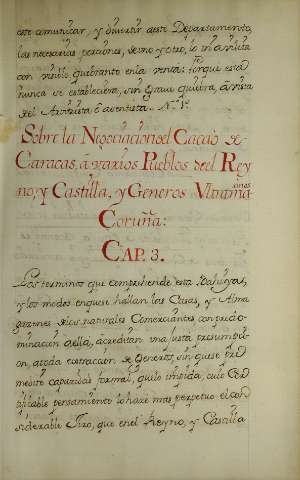 este comunicar, y divertir aeste Departamento,
las necesarias porciones, de uno y otro, lo invalida
con visible quebranto en la venta: Porque esta
nunca se establecera, sin grave quiebra, avista
del Asentista ó aventista. N. 1º
Sobre la Negociacion del Cacao de
Caracas, á varios Pueblos deel Rey
no, y Castilla, y Generos Ultrama
rinos
Coruña:
CAP. 3.
Los terminos que comprehende esta Bahia,
y los modos en que se hallan las Casas, y Alma
gacenes de los naturales Comerciantes con predo
minacion aella, acreditan una justa presumpci
on, atoda extraccion de Generos, sin que se pre
medite capacidad formal, que lo impida, cuio
pensamiento lo haze mas perpetuo el con
siderable Giro, que en el Reyno, y Castilla